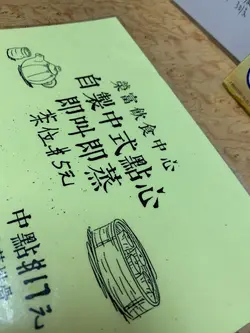 榮富飲食中心
自製中式點心
即叫即蒸
茶位$5元
中點$17元